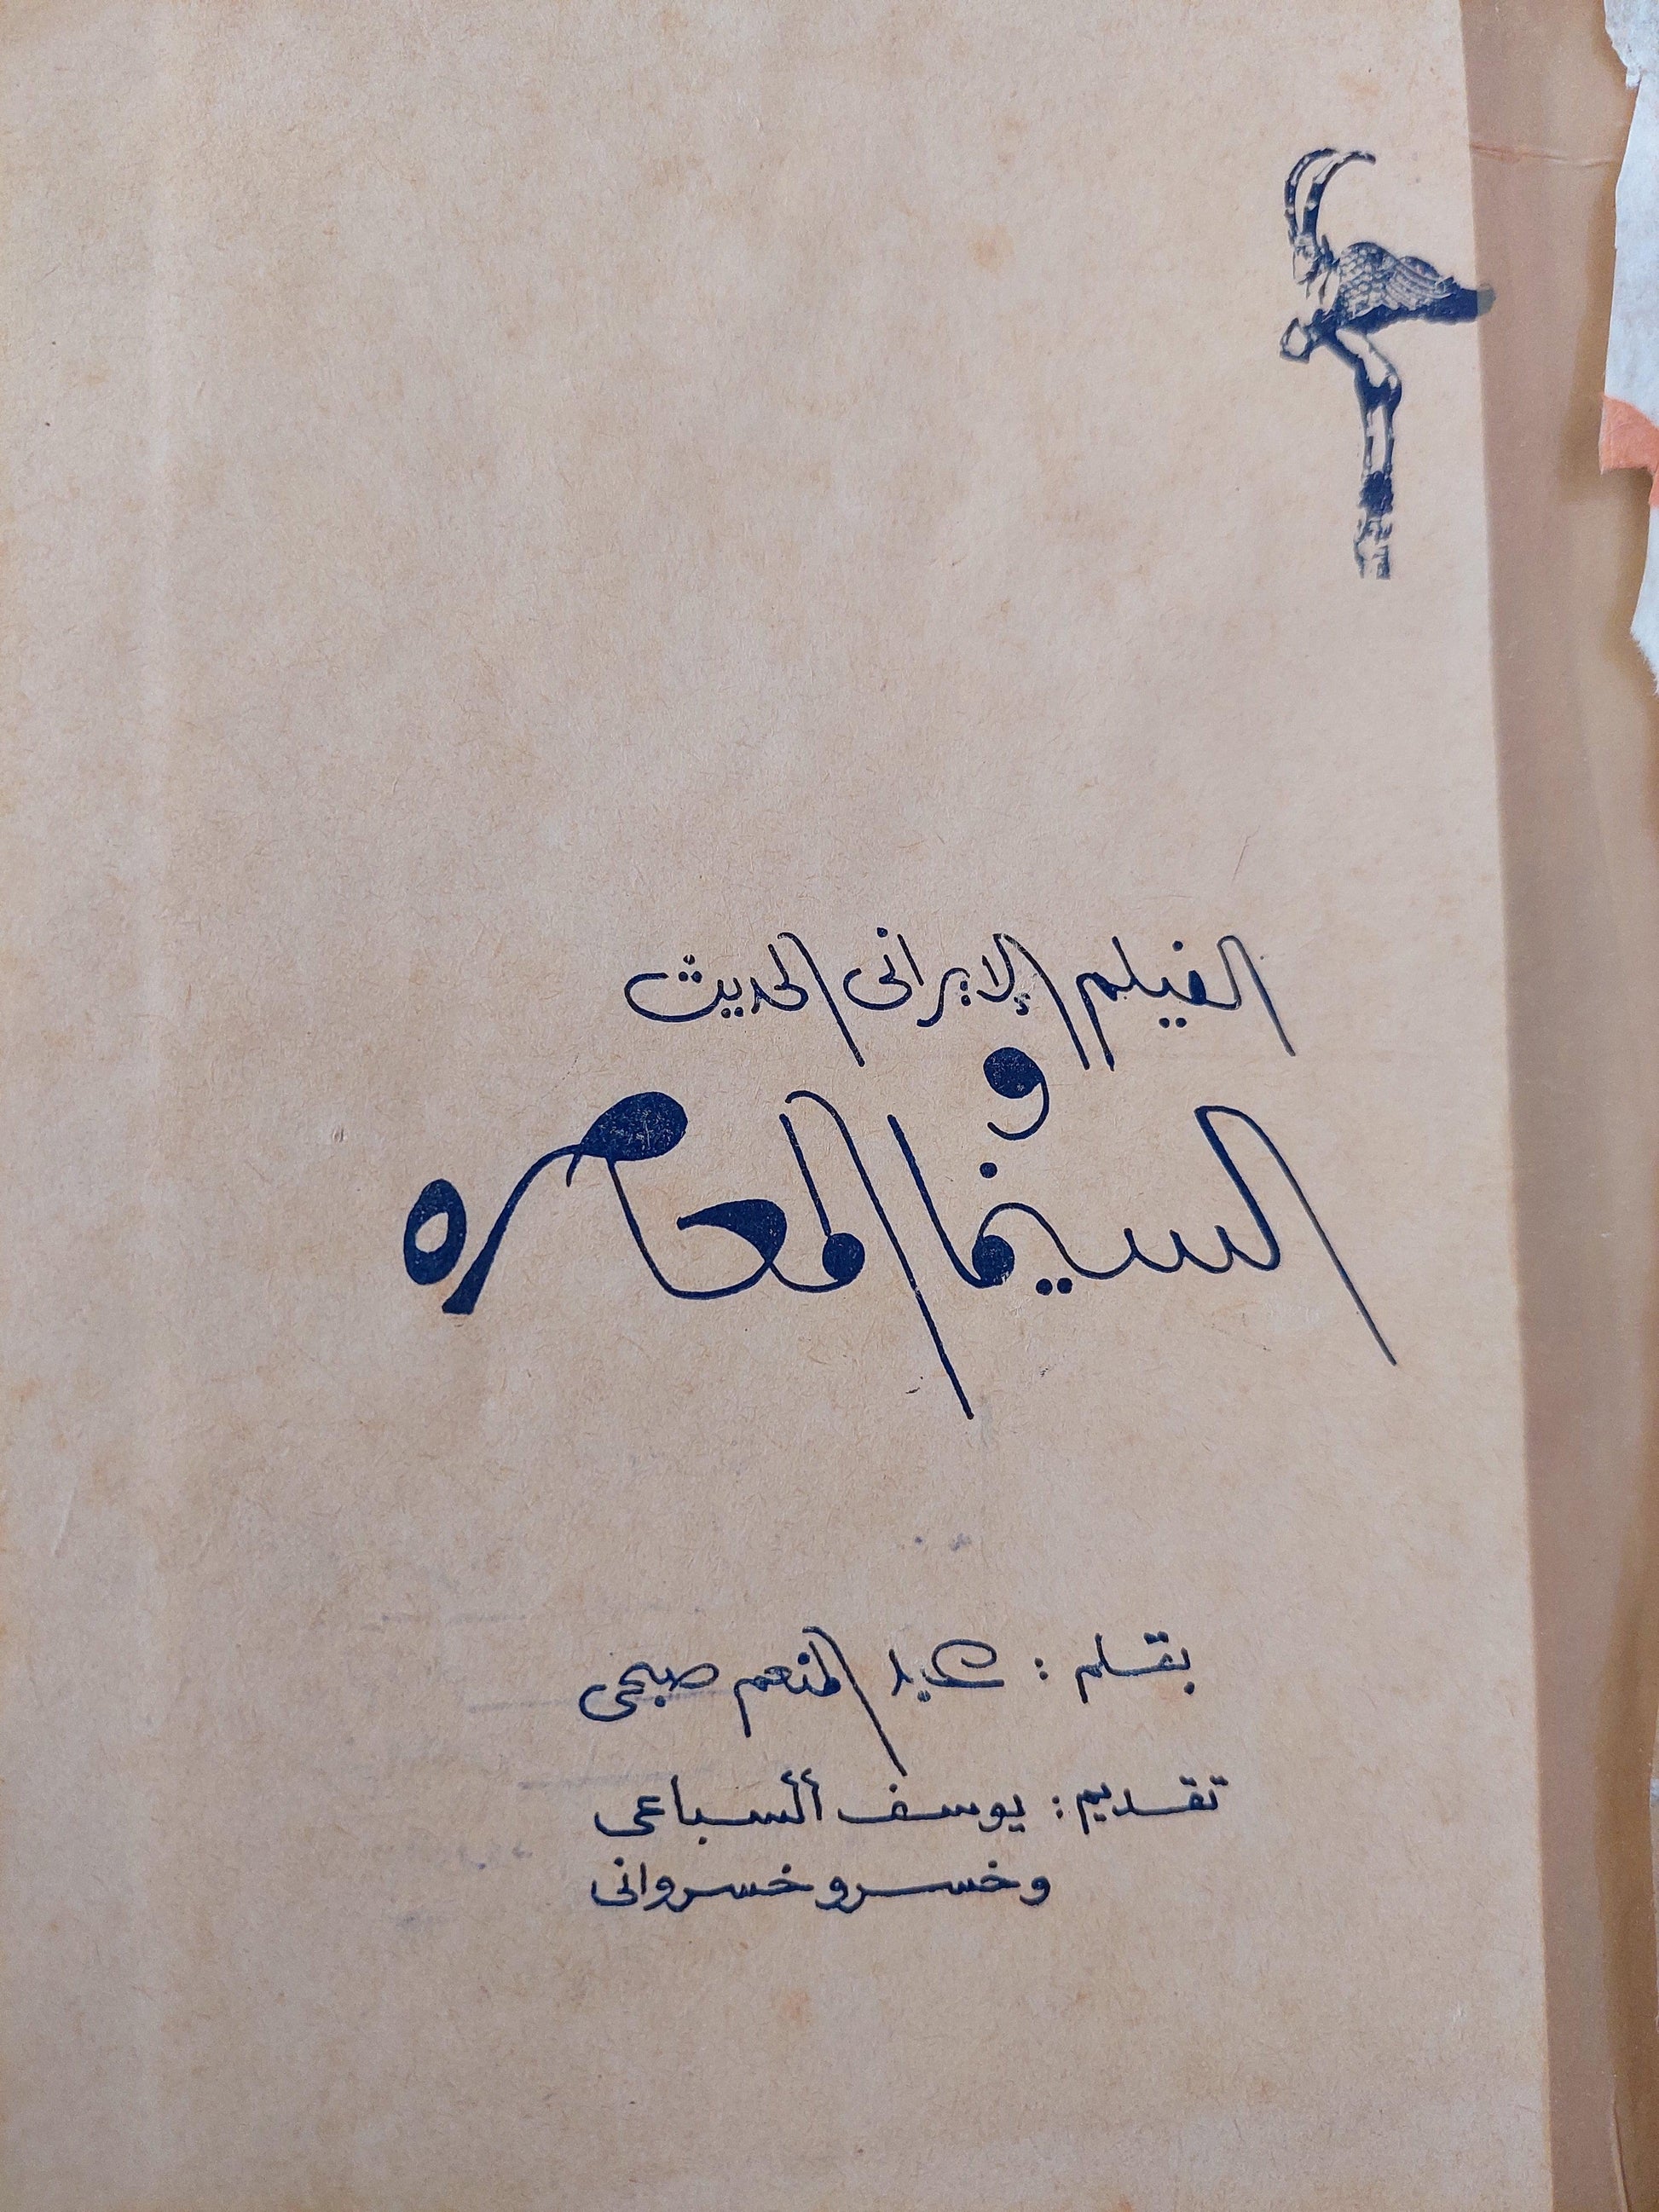 الفيلم الإيرانى الحديث
و
السينما المعاصره
بقلم : عبد المنعم صبحى
تقديم : يوسف السباعى
وخسرو خسروانى